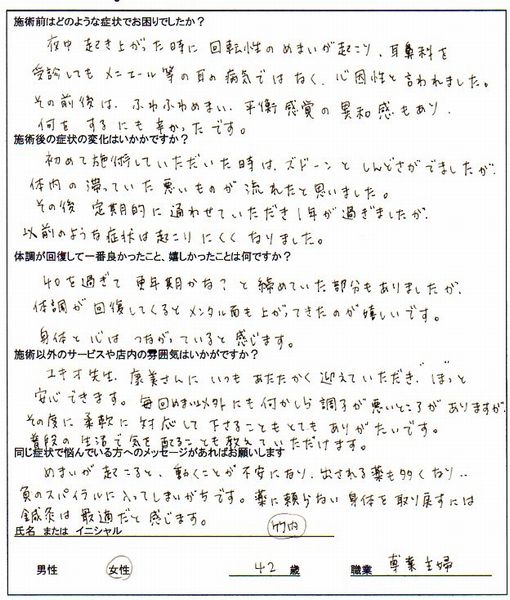 施術前はどのような症状でお困りでしたか？
夜中 起き上がった時に 回転性のめまいが起こり、耳鼻科を
受診しても メニエール等の耳の病気ではなく、心因性と言われました。
その前後は、ふわふわめまい、平衡感覚の異和感もあり、
何をするにも辛かったです。
施術後の症状の変化はいかかですか？
初めて施術していただいた時は、ズドーンと しんどさがでましたが、
体内の滞っていた悪いものが 流れたと思いました。
その後 定期的に通わせていただき1年が過ぎましたが、
以前のような症状は起こりにくくなりました。
体調が回復して一番良かったこと、嬉しかったことは何ですか？
40を過ぎて 更年期かな？と 諦めていた部分もありましたが、
体調が回復してくると メンタル面も上がってきたのが嬉しいです。
身体と心は つながっていると感じます。
施術以外のサービスや店内の雰囲気はいかがですか？
ユキオ先生、康美さんに いつも あたたかく 迎えていただき、ほっと
安心できます。毎回めまい以外にも何かしら調子が悪いところがありますが、
その度に 柔軟に 対応して下さることもとてもありがたいです。
普段の生活で気を配ることも教えていただけます。
同じ症状で悩んでいる方へのメッセージがあればお願いします
めまいが起こると、動くことが不安になり、出される薬も多くなり…
負のスパイラルに入ってしまいがちです。薬に頼らない身体を取り戻すには
鍼灸は 最適だと感じます。
氏名 または イニシャル 竹内
男性 女性 42 歳 職業 専業主婦